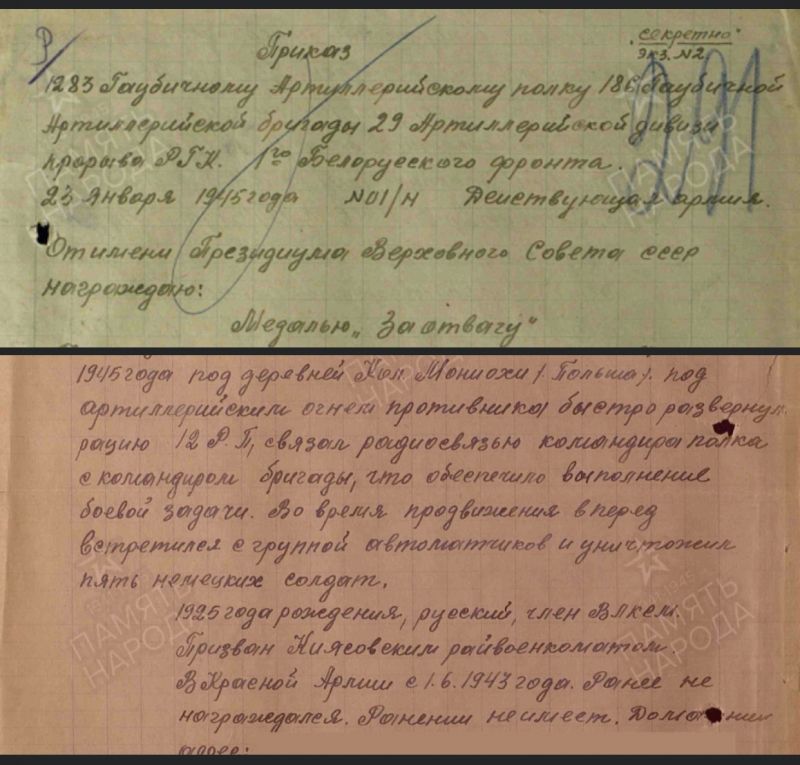 "секретно"
экз. N2
Приказ
1283 Гаубичному Артиллерийскому полку 186 Гаубичной
Артиллерийской бригады 29 Артиллерийской дивизи
прорыва РГК. 1го Белорусского фронта.
23 Января 1945 года N01/н Действующая армия.
От имени Президиума Верховного Совета СССР
награждаю:
Медалью „За отвагу"
1945 года под деревней Кол. Мониохи /Польша/. под
артиллерийским огнем противника быстро развернул
рацию 12 Р.П, связал радиосвязью командира полка
с командиром бригады, что обеспечило выполнение
боевой задачи. Во время продвижения вперед
встретился с группой автоматчиков и уничтожил
пять немецких солдат.
1925 года рождения, русский, член ВЛКСМ.
Призван Киясовским райвоенкоматом.
В Красной Армии с 1.6.1943 года. Ранее не
награждался. Ранении не имеет.
адрес:
ПАМЯТЬ
НАРОДА
ПАМЯТЬ
НАРОДА
ПАМЯТЬ
НАРОДА
ПАМЯТЬ
НАРОДА